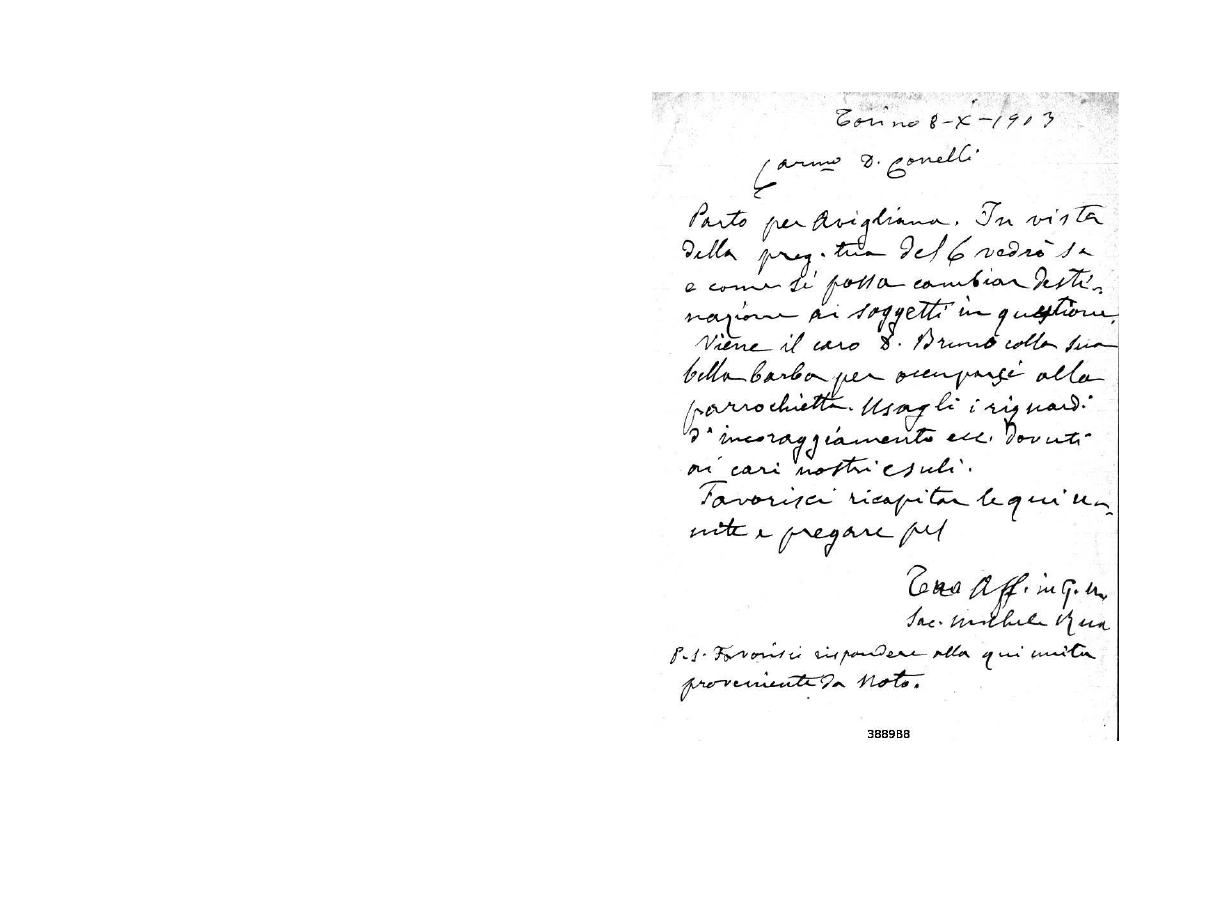 Torino 8-X-1903
Carmo D. Conelli
Parto per Avigliana. In vista
della preg. tua del 6 vedrò se
e come si possa cambiar desti-
nazione ai soggetti in questione.
Viene il caro D. Bruno colla sua
bella barba per occuparsi alla
parrochietta. Usagli i riguardi
d'incoraggiamento ecc. dovuti
ai cari nostri esuli.
Favorisci ricapitar le qui u-
nite e pregare pel
Tuo Aff. in G. M.
Sac. Michele Rua
P.S. Favorisci rispondere alla qui unita
proveniente da Noto.
3889B8